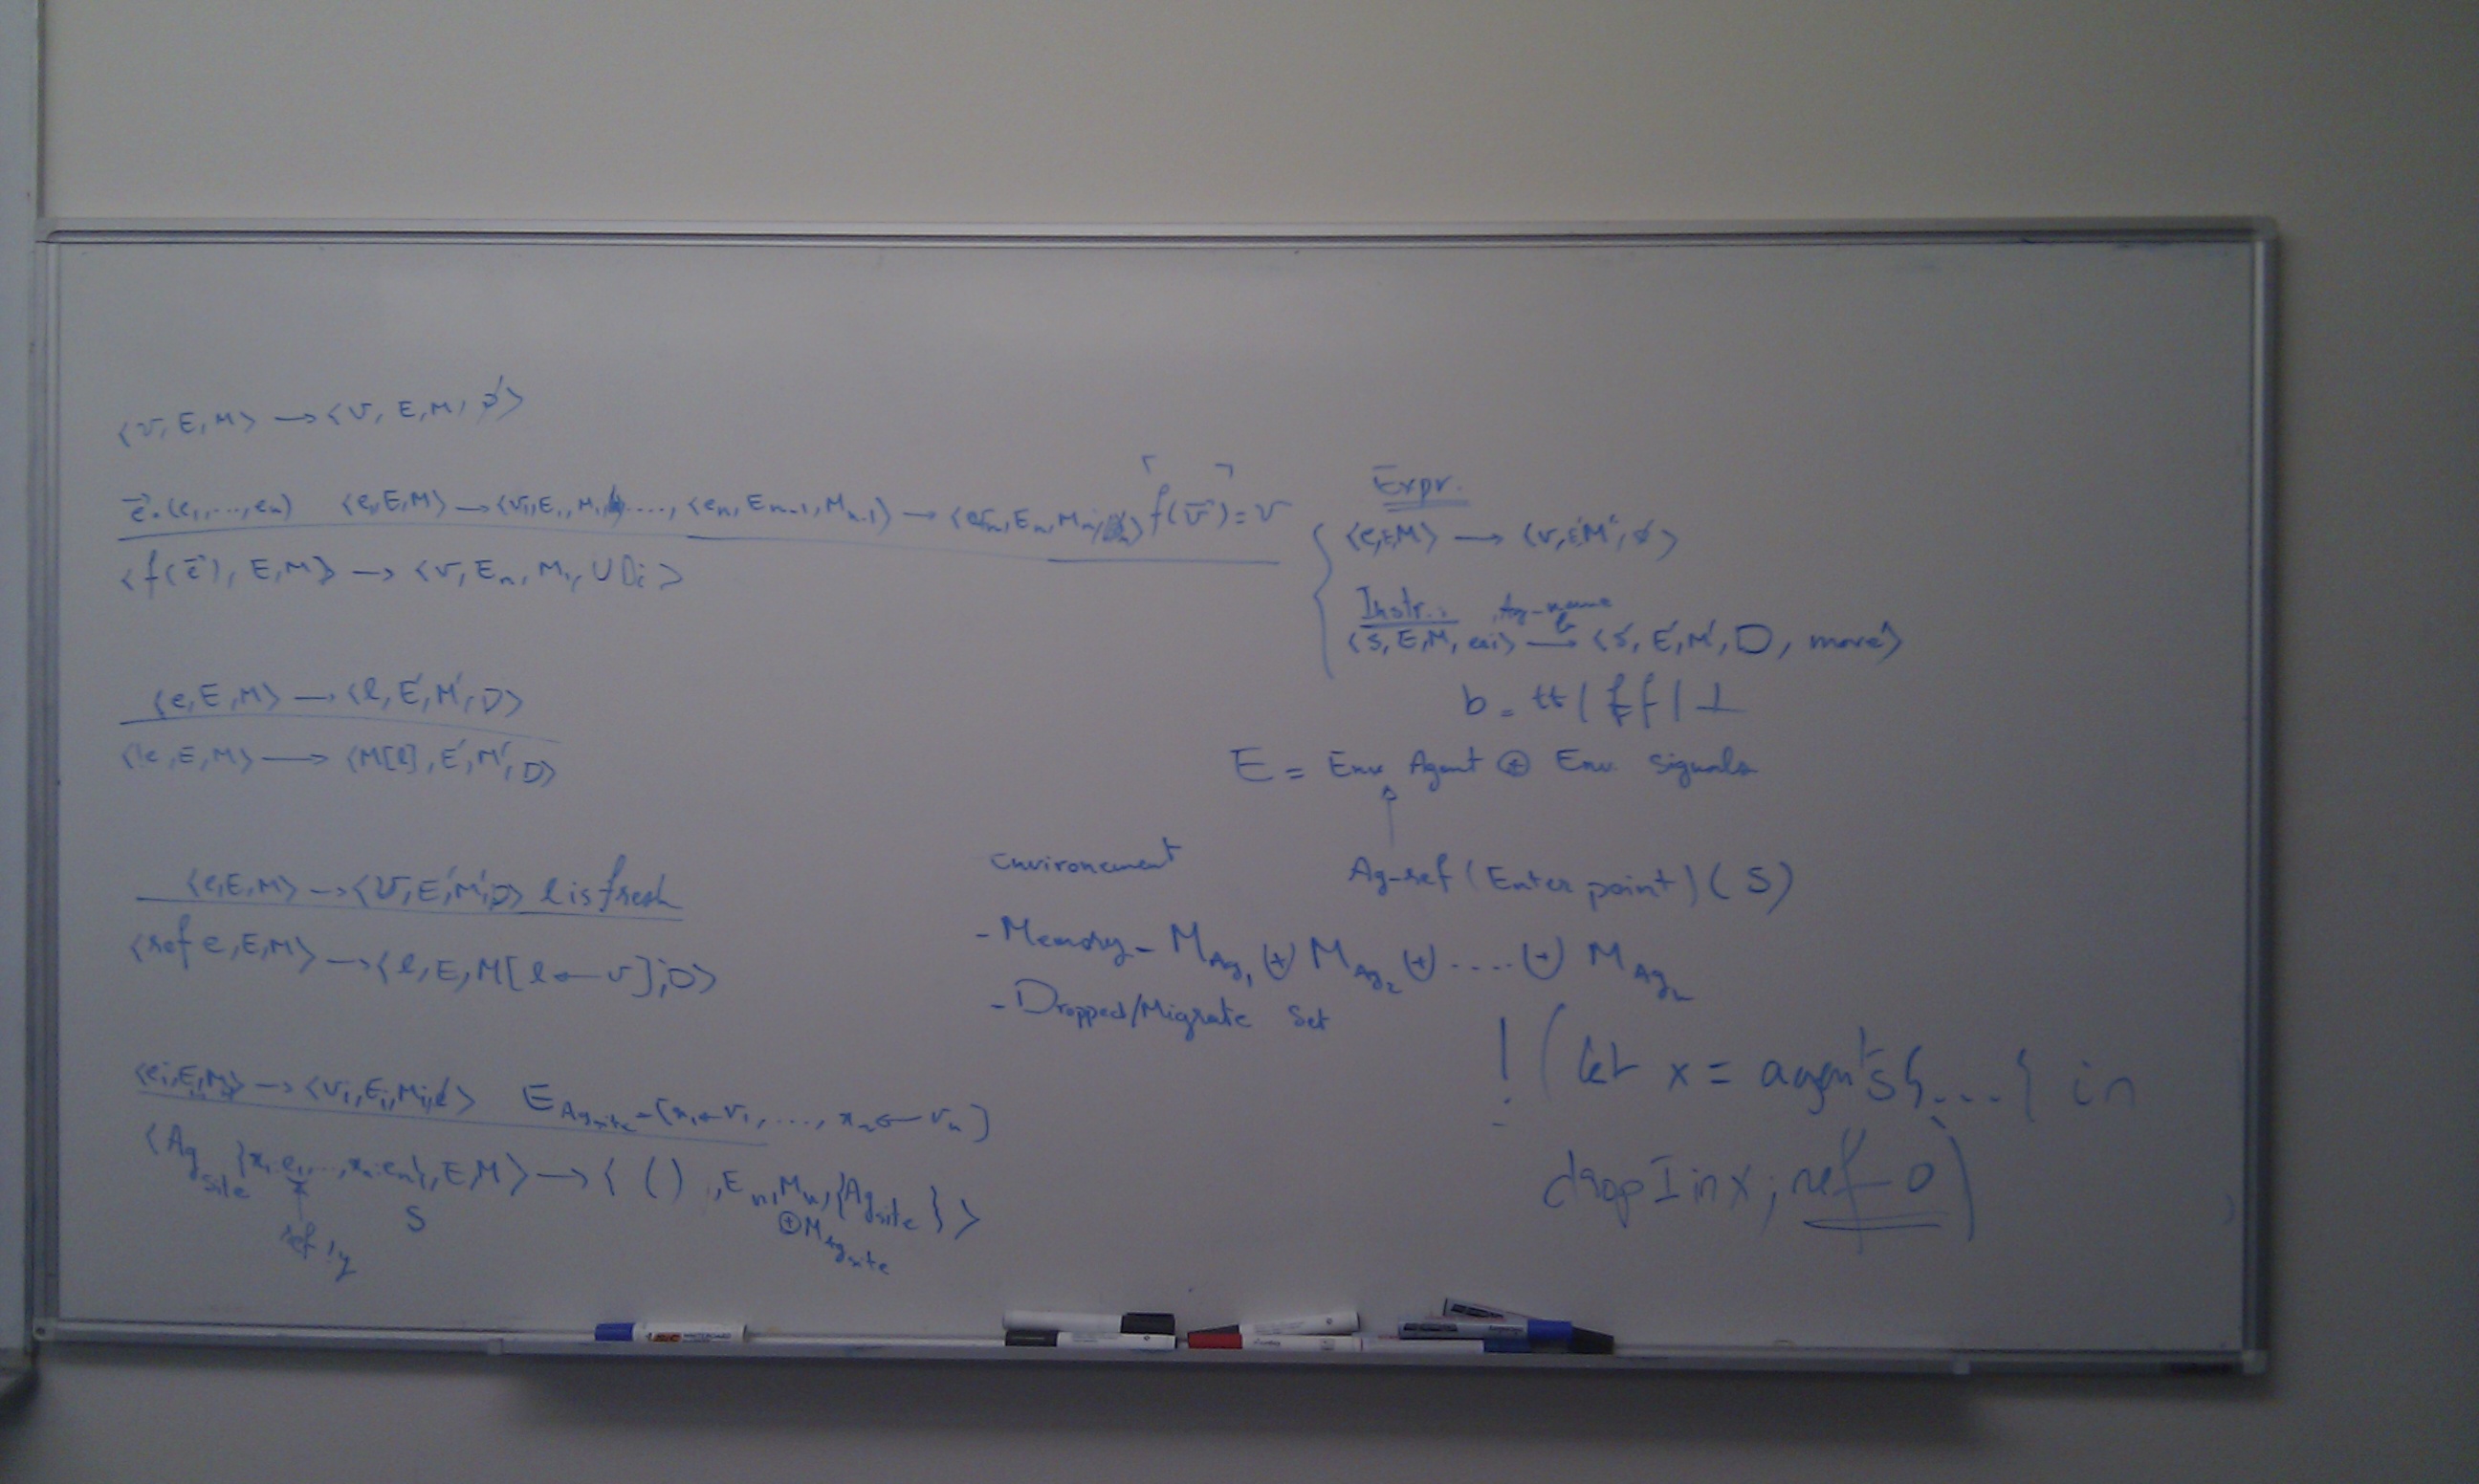 ⟨v, E, M⟩ → ⟨v, E, M, ∅⟩
e⃗ = (e₁, ..., eₙ) ⟨e₁, E, M⟩ → ⟨v₁, E₁, M₁, ...., ⟨eₙ, Eₙ₋₁, Mₙ₋₁⟩ → ⟨vₙ, Eₙ, Mₙ, ⟩ ⌜f(v⃗)⌝ = v
⟨f(e⃗), E, M⟩ → ⟨v, Eₙ, Mₙ, ∪Dᵢ⟩
⟨e, E, M⟩ → ⟨ℓ, E', M', D⟩
⟨!e, E, M⟩ → ⟨M[ℓ], E', M', D⟩
⟨e, E, M⟩ → ⟨v, E', M', D⟩ ℓ is fresh
⟨ref e, E, M⟩ → ⟨ℓ, E, M[ℓ ← v], D⟩
⟨eᵢ, Eᵢ, Mᵢ⟩ → ⟨vᵢ, Eᵢ, Mᵢ, ∅⟩ E_Ag_site = [x₁ ← v₁, ..., xₙ ← vₙ]
⟨Ag_site {x₁:e₁, ..., xₙ:eₙ}, E, M⟩ → ⟨ (), Eₙ, Mₙ, {Ag_site} ⟩
⊕ M_Ag_site
S
ref !y
Expr.
⟨e, E, M⟩ → ⟨v, E', M', ∅⟩
Instr.: Ag-name
⟨s, E, M, ⟩ →ᵇ ⟨s', E', M', D, move⟩
b = tt | ff | ⊥
E = Env Agent ⊕ Env. signals
Ag-ref (Enter point) (S)
Environement
- Memory = M_Ag₁ ⊎ M_Ag₂ ⊎ .... ⊎ M_Agₙ
- Dropped/Migrate Set
! (let x = agent s {....} in
drop I in x; ref 0)